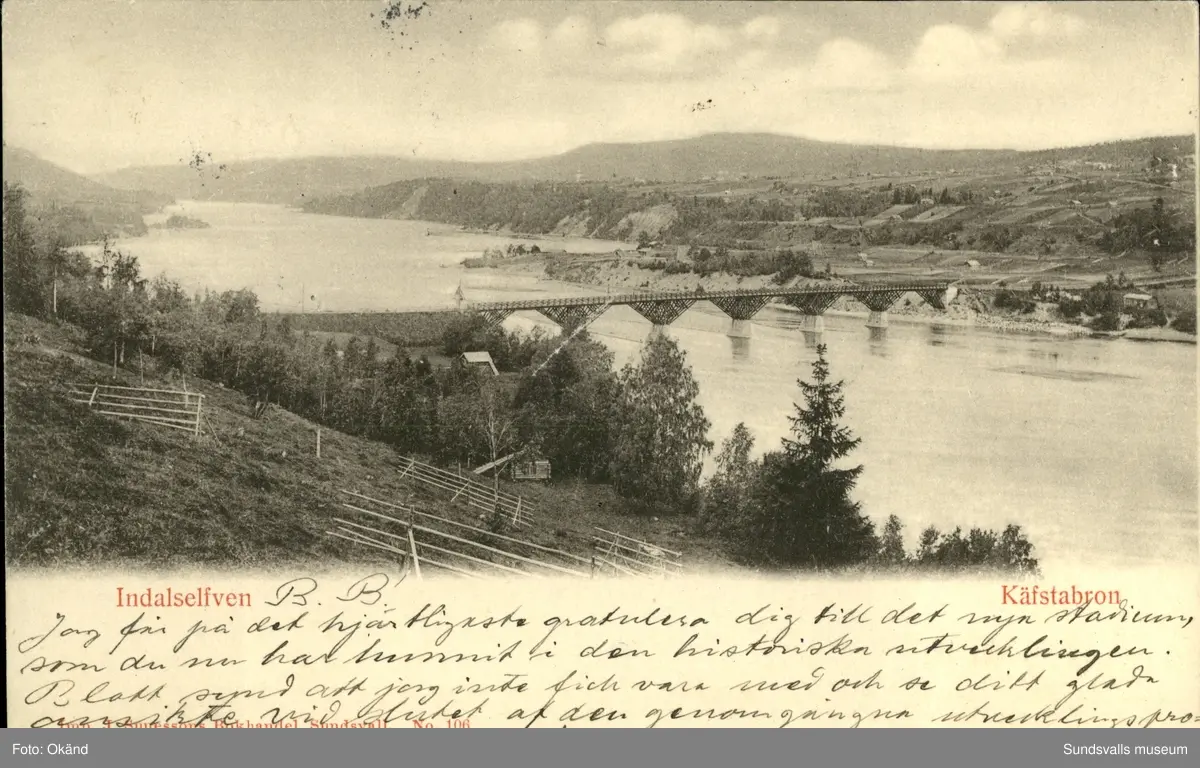 Indalselfven B. B Käfstabron
Jag får på det hjärtligaste gratulera dig till det nya stadium,
som du nu har hunnit i den historiska utvecklingen.
Blott synd att jag inte fick vara med och se ditt glada
vid slutet af den genomgångna utvecklingspro=
Bokhandel, Sundsvall. No. 106
Foto: Okänd Sundsvalls museum